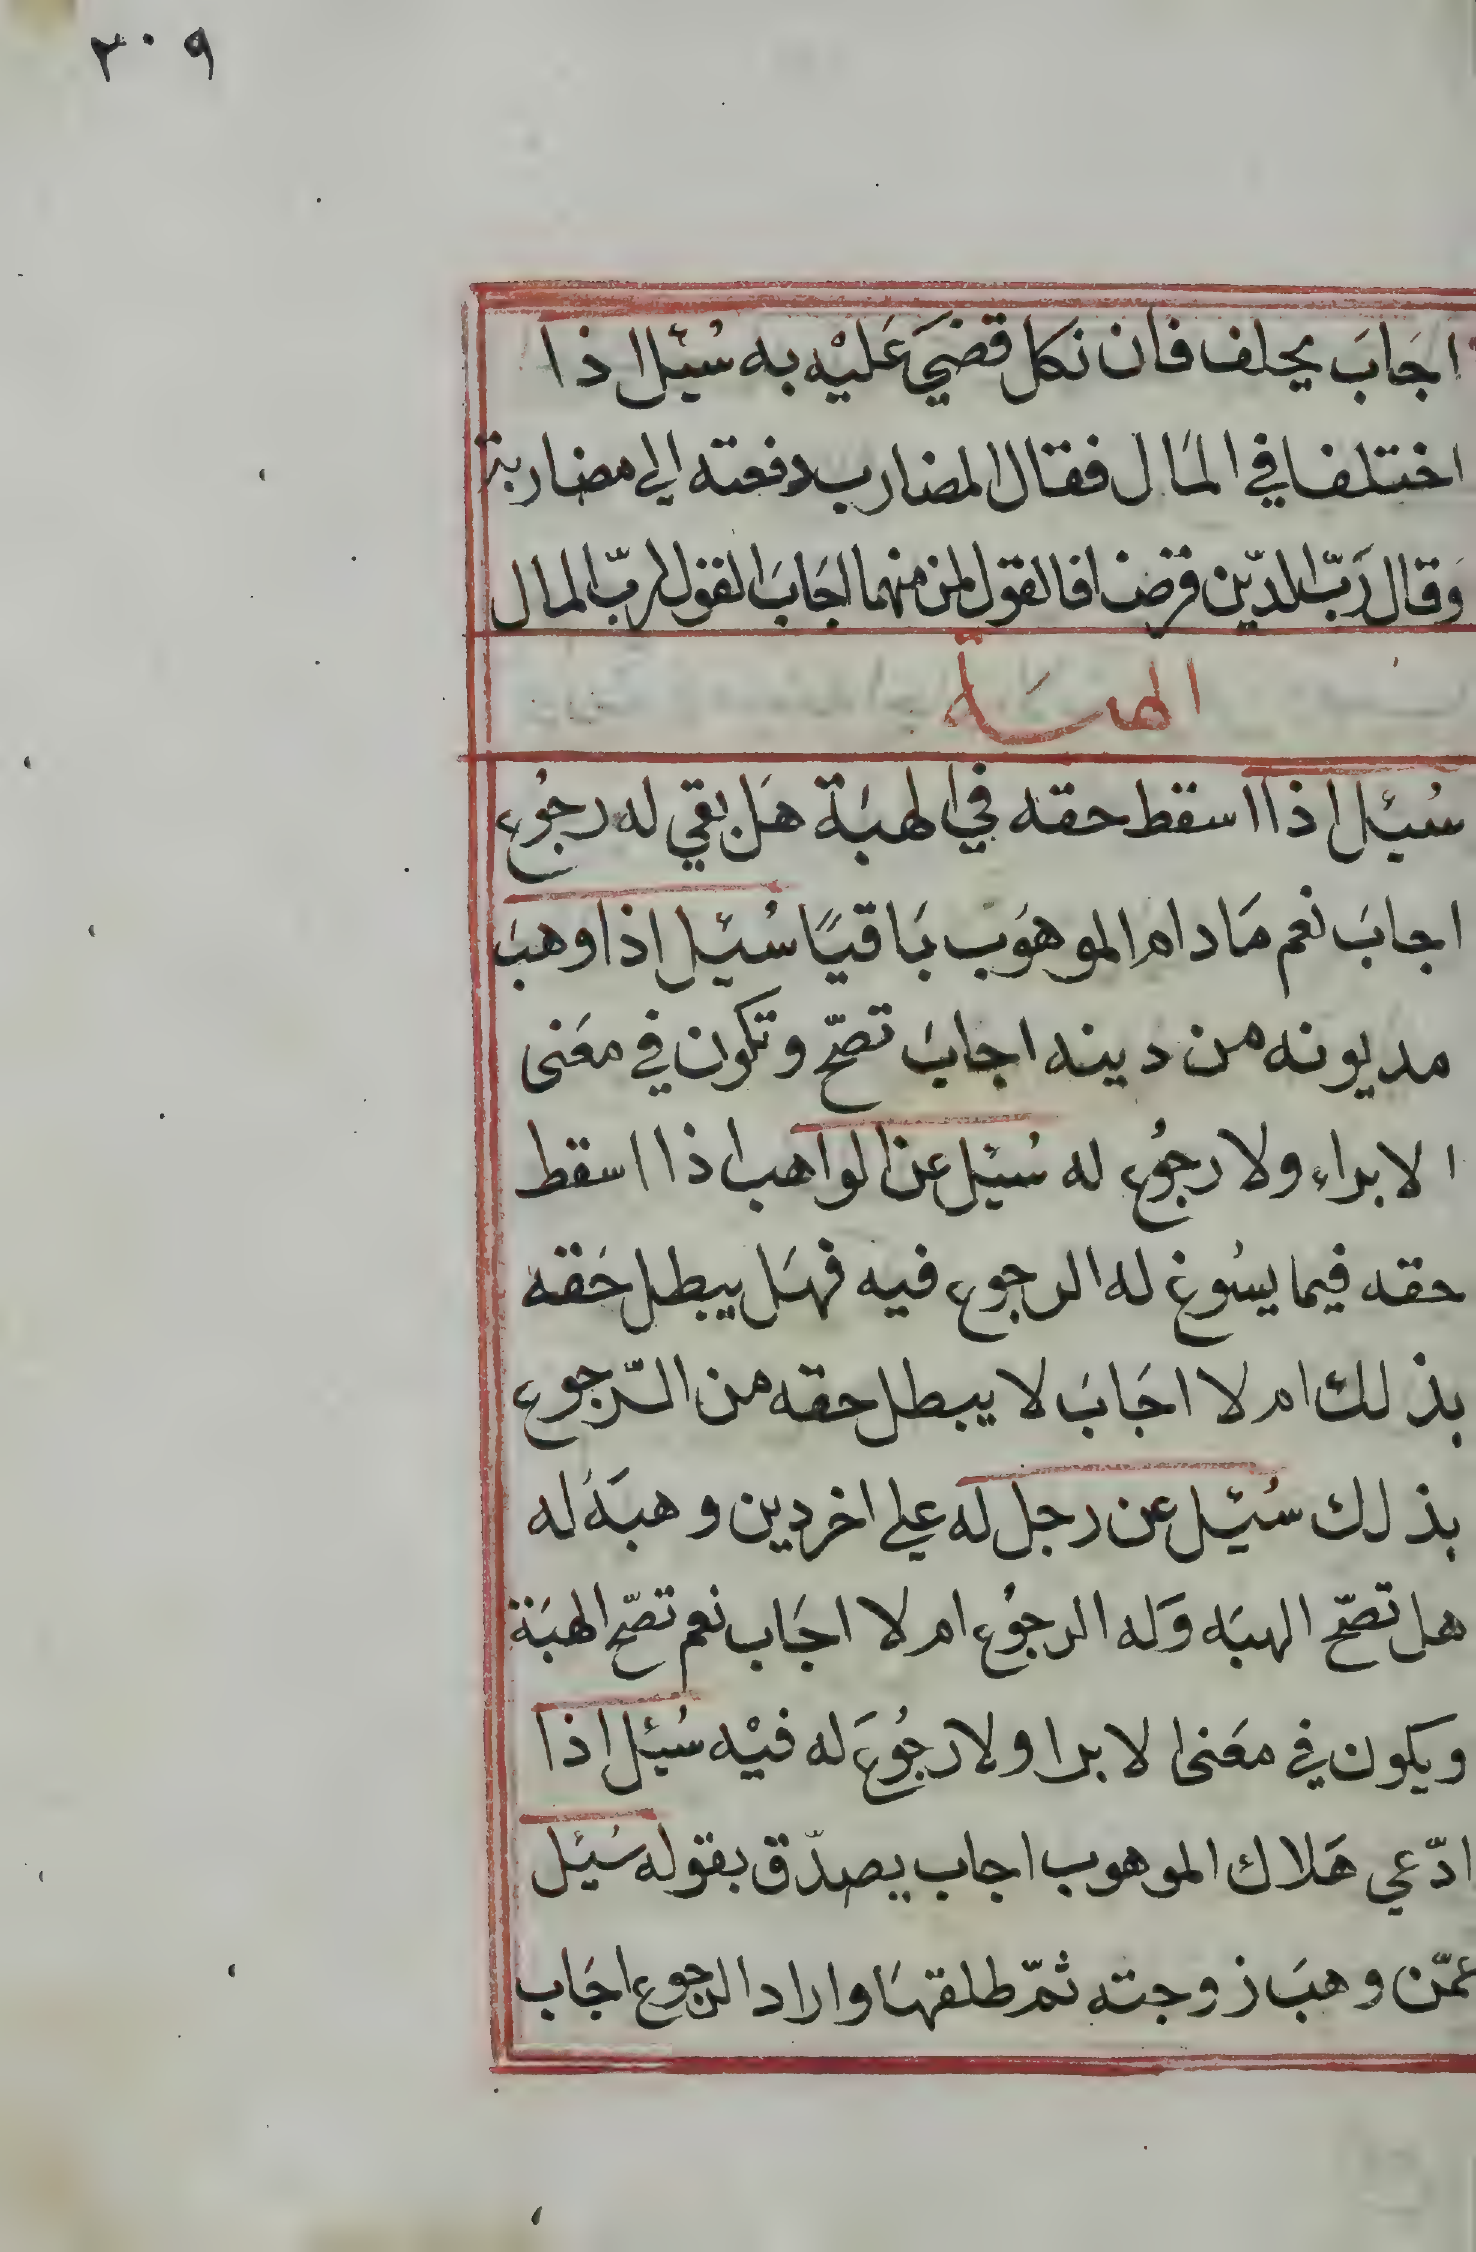 ٢٠٩
اجَابَ يحلف فان نكل قضيَ عَليْه به سُئِل اذا
اختلفا في المَال فقال المضارب دفعته الي مضاربة
وَقال رَبّ الدّين قرضا فالقول لمن منهما اجَابَ القول لربّ المال
الهبَة
سُئِل اذا اسقط حقه في الهبَة هَل بقي له رجُوع
اجابَ نعم مَادام الموهوَب بَاقيًا سُئِل اذا وهبَ
مديونه من دينه اجابَ تصحّ وتكون في معَنى
الابراء ولا رجُوع له سُئِل عن الواهب اذا اسقط
حقه فيما يسُوغ له الرجوع فيه فهَل يبطل حَقه
بذلك ام لا اجَابَ لا يبطل حقه من الرّجوع
بذلك سُئِل عن رجل له علي اخر دين وهبَهُ له
هل تصحّ الهبَه وَله الرجُوع ام لا اجَاب نعم تصّح الهبَة
ويكون في معَنى الابرا ولا رجُوعَ له فيْه سُئِل اذا
ادّعي هَلاك الموهوب اجاب يصدّق بقوله سُئِل
عمّن وهبَ زوجته ثمّ طلقهَا واراد الرجوع اجَاب